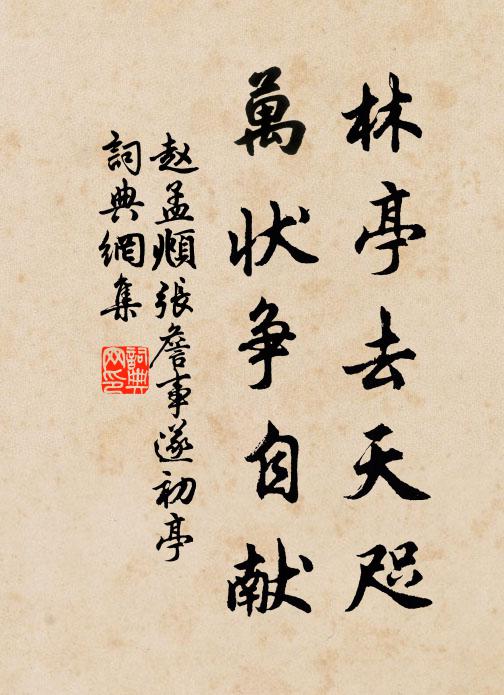 林亭去天咫
萬状争自献
赵孟頫張詹事遂初亭
詞典網集
詞典网印